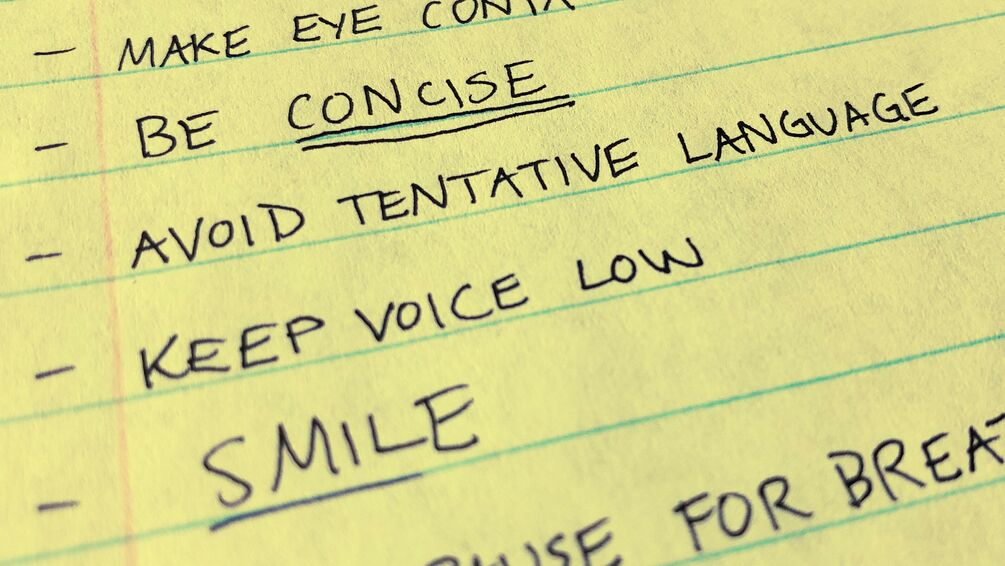 - MAKE EYE
- BE CONCISE
- AVOID TENTATIVE LANGUAGE
- KEEP VOICE LOW
- SMILE
FOR